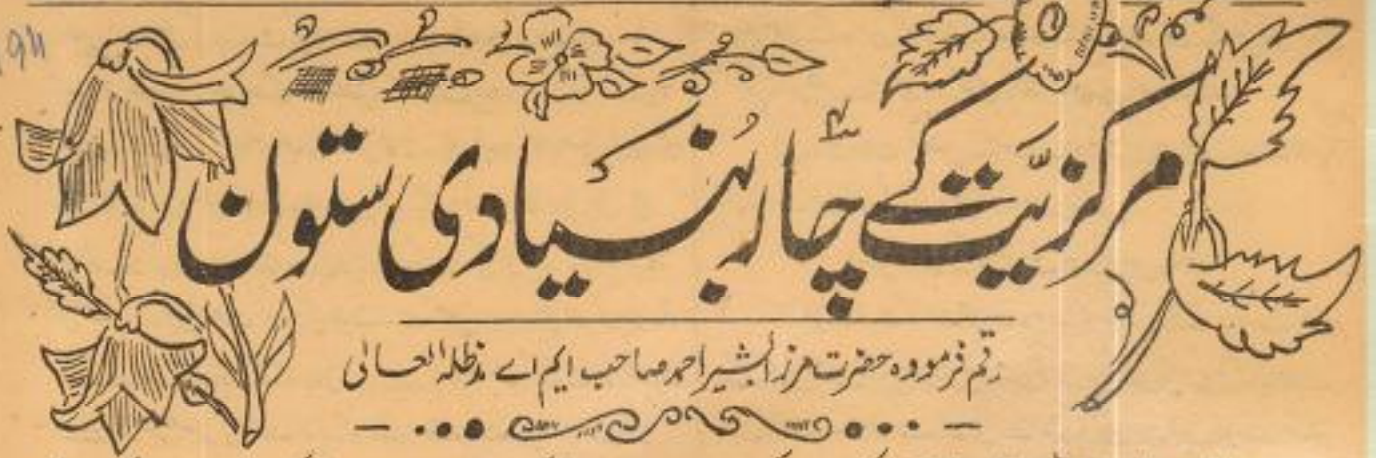 مرکزیّت کے چار بُنیادی ستون
رقم فرمودہ حضرت مرزا بشیر احمد صاحب ایم اے مدظلہ العالی